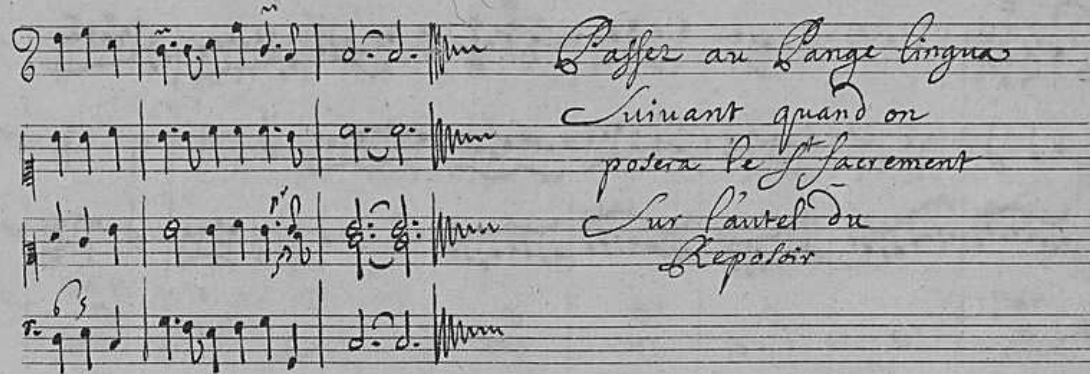 Passez au Pange lingua
Suivant quand on
posera le St Sacrement
Sur l'autel du
Reposoir
6 5